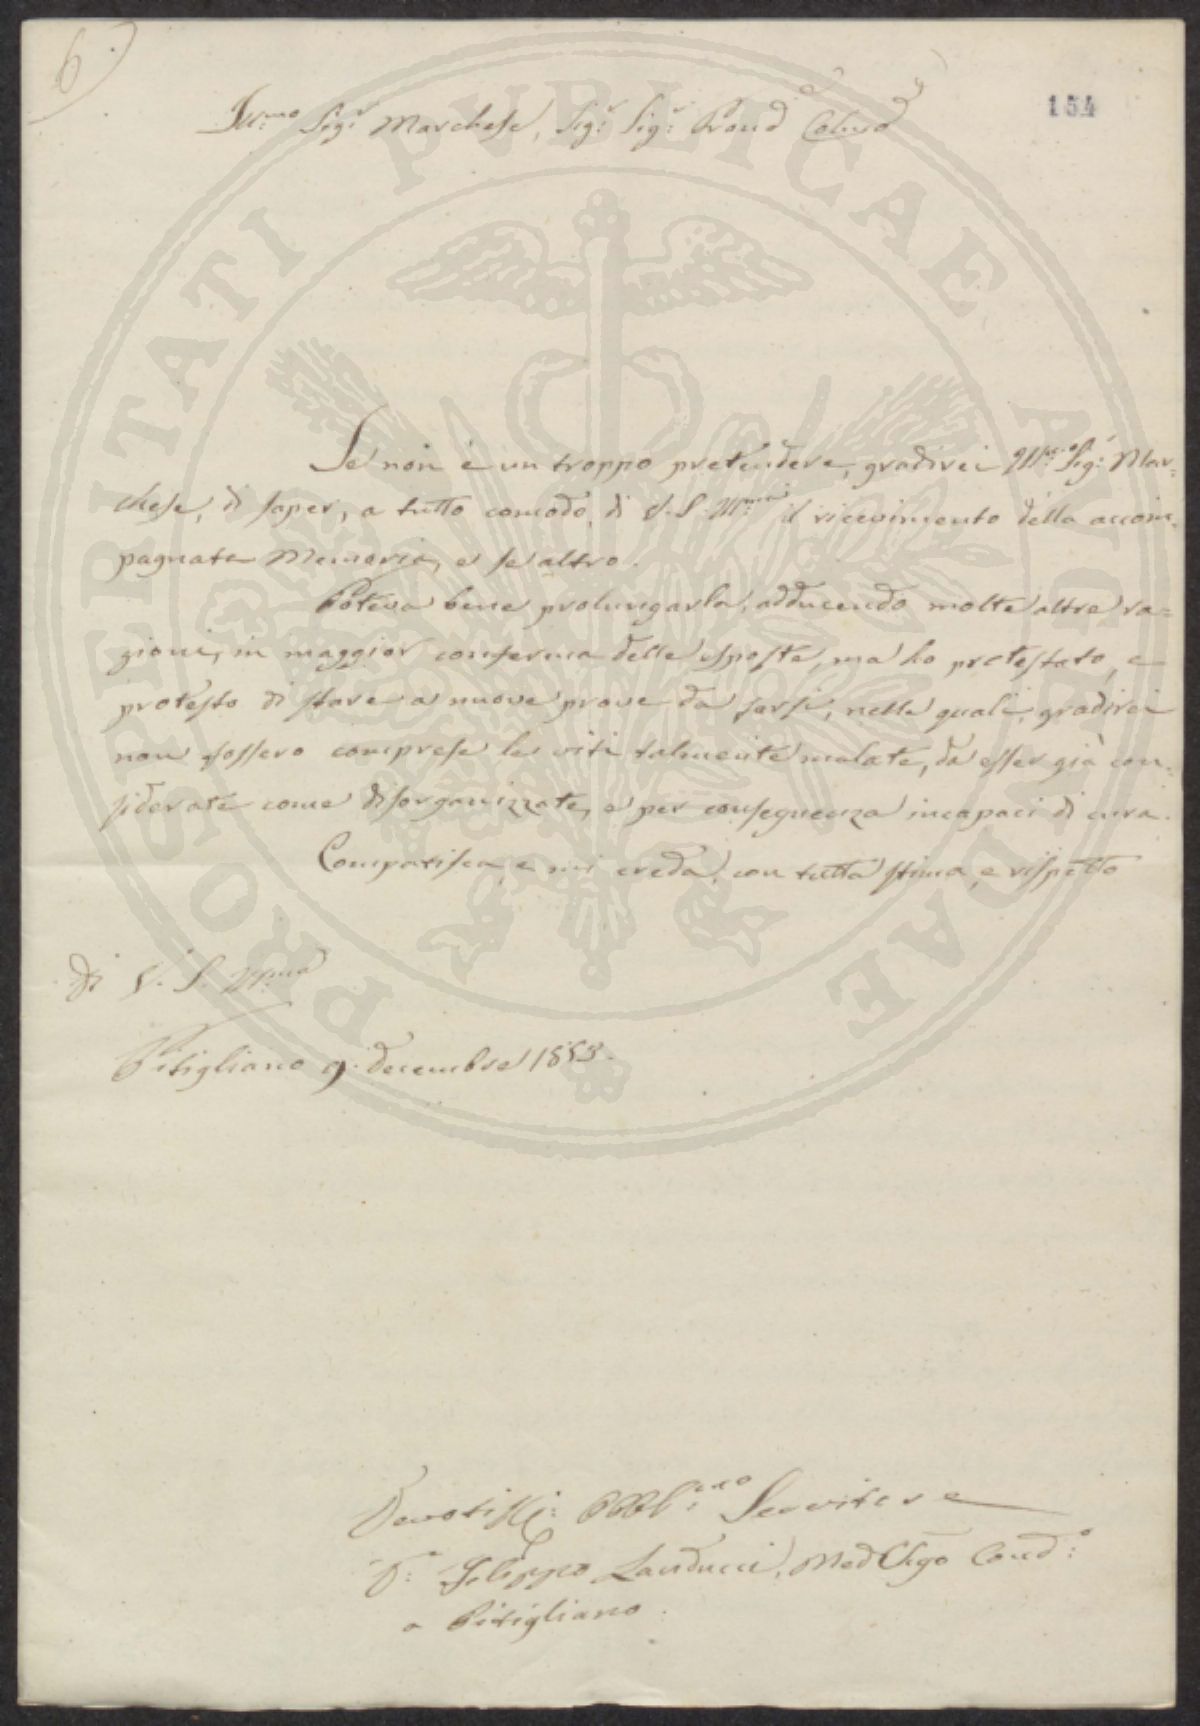 6
154
Ill:mo Sig:r Marchese, Sig:r Sig:r Prond Colmo
Se non è un troppo pretendere, gradirei Ill:mo Sig:r Mar=
chese, di saper, a tutto comodo, di V. S. Ill:ma il ricevimento della accom=
pagnata Memoria, e se altro.
Poteva bene prolungarla, adducendo molte altre ra=
gioni, in maggior conferma delle esposte, ma ho protestato, e
protesto di stare a nuove prove da farsi, nelle quali, gradirei
non fossero comprese le viti talmente malate, da esser già con=
siderate come disorganizzate, e per conseguenza incapaci di cura.
Compatisca, e mi creda, con tutta stima, e rispetto
di V. S. Ill:ma
Pitigliano 9. decembre 1853.
Devotiss: Obbl:mo Servitore
D: Filippo Landucci, Med Chgo Cond:o
a Pitigliano.
PROSPERITATI PVBLICAE AVGENDAE